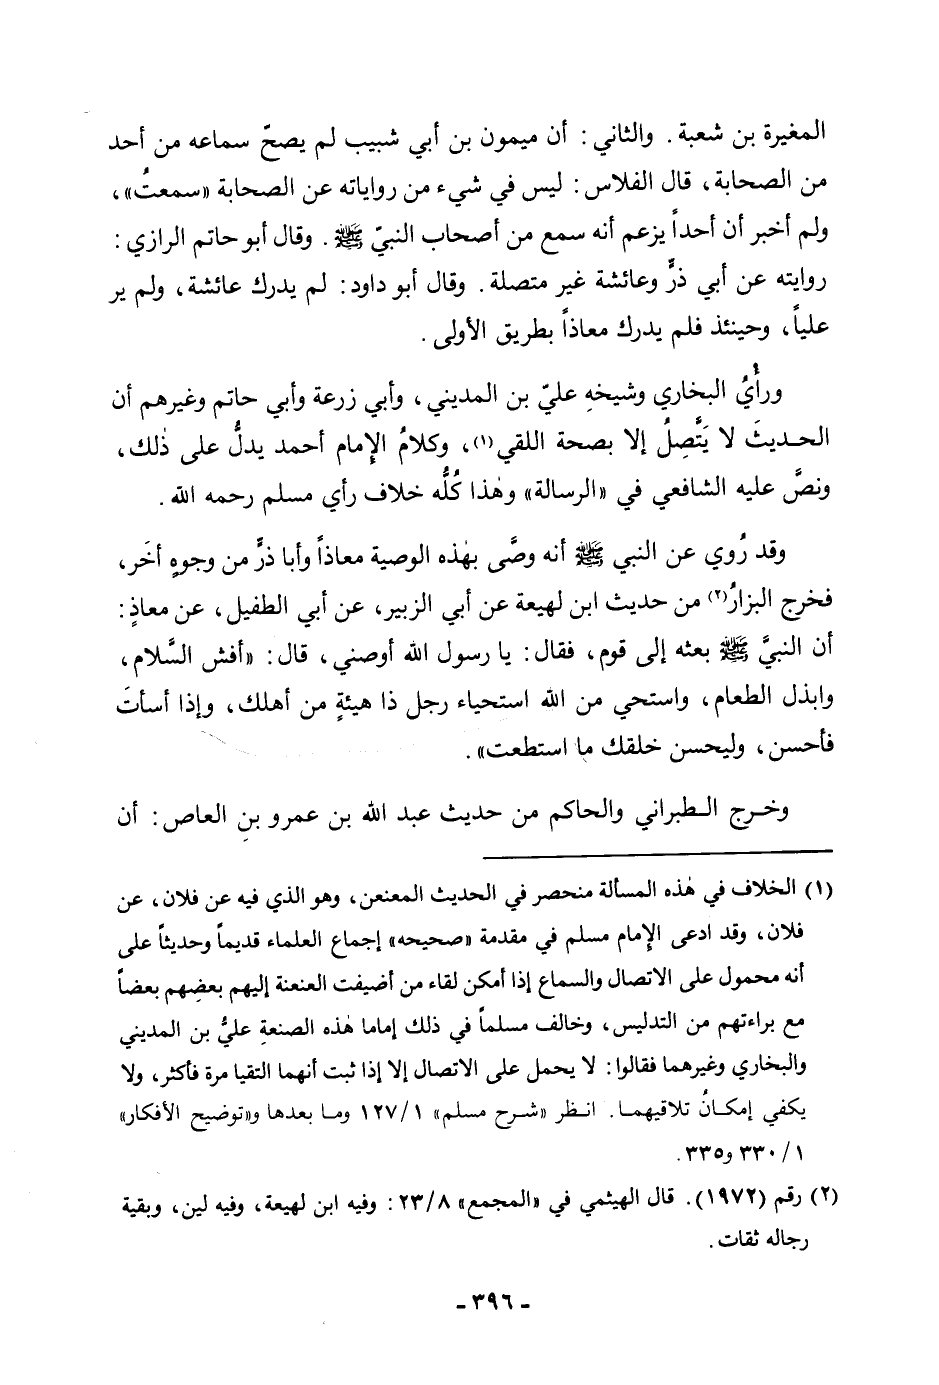 المغيرة بن شعبة . والثاني : أن ميمون بن أبي شبيب لم يصحّ سماعه من أحد
من الصحابة ، قال الفلاس : ليس في شيء من رواياته عن الصحابة «سمعتُ» ،
ولم أخبر أن أحداً يزعم أنه سمع من أصحاب النبيّ ﷺ . وقال أبو حاتم الرازي :
روايته عن أبي ذرٍّ وعائشة غير متصلة . وقال أبو داود : لم يدرك عائشة ، ولم ير
علياً ، وحينئذ فلم يدرك معاذاً بطريق الأولى .
ورأْيُ البخاري وشيخهِ عليّ بن المديني ، وأبي زرعة وأبي حاتم وغيرهم أن
الحديثَ لا يَتَّصِلُ إلا بصحة اللقي(١) ، وكلامُ الإمام أحمد يدلُّ على ذٰلك ،
ونصَّ عليه الشافعي في «الرسالة» وهٰذا كُلُّه خلاف رأي مسلم رحمه الله .
وقد رُوي عن النبي ﷺ أنه وصَّى بهٰذه الوصية معاذاً وأبا ذرٍّ من وجوهٍ أخَر ،
فخرج البزارُ(٢) من حديث ابن لهيعة عن أبي الزبير ، عن أبي الطفيل ، عن معاذٍ :
أن النبيَّ ﷺ بعثه إلى قوم ، فقال : يا رسول الله أوصني ، قال : «أفش السَّلام ،
وابذل الطعام ، واستحي من الله استحياء رجل ذا هيئةٍ من أهلك ، وإذا أسأتَ
فأحسن ، وليحسن خلقك ما استطعت» .
وخرج الطبراني والحاكم من حديث عبد الله بن عمرو بنِ العاص : أن
(١) الخلاف في هٰذه المسألة منحصر في الحديث المعنعن ، وهو الذي فيه عن فلان ، عن
فلان ، وقد ادعى الإمام مسلم في مقدمة «صحيحه» إجماع العلماء قديماً وحديثاً على
أنه محمول على الاتصال والسماع إذا أمكن لقاء من أضيفت العنعنة إليهم بعضِهم بعضاً
مع براءتهم من التدليس ، وخالف مسلماً في ذلك إماما هٰذه الصنعةِ عليُّ بن المديني
والبخاري وغيرهما فقالوا : لا يحمل على الاتصال إلا إذا ثبت أنهما التقيا مرة فأكثر ، ولا
يكفي إمكانُ تلاقيهما . انظر «شرح مسلم» ١٢٧/١ وما بعدها و«توضيح الأفكار»
٣٣٠/١ و٣٣٥ .
(٢) رقم (١٩٧٢) . قال الهيثمي في «المجمع» ٢٣/٨ : وفيه ابن لهيعة ، وفيه لين ، وبقية
رجاله ثقات .
- ٣٩٦ -